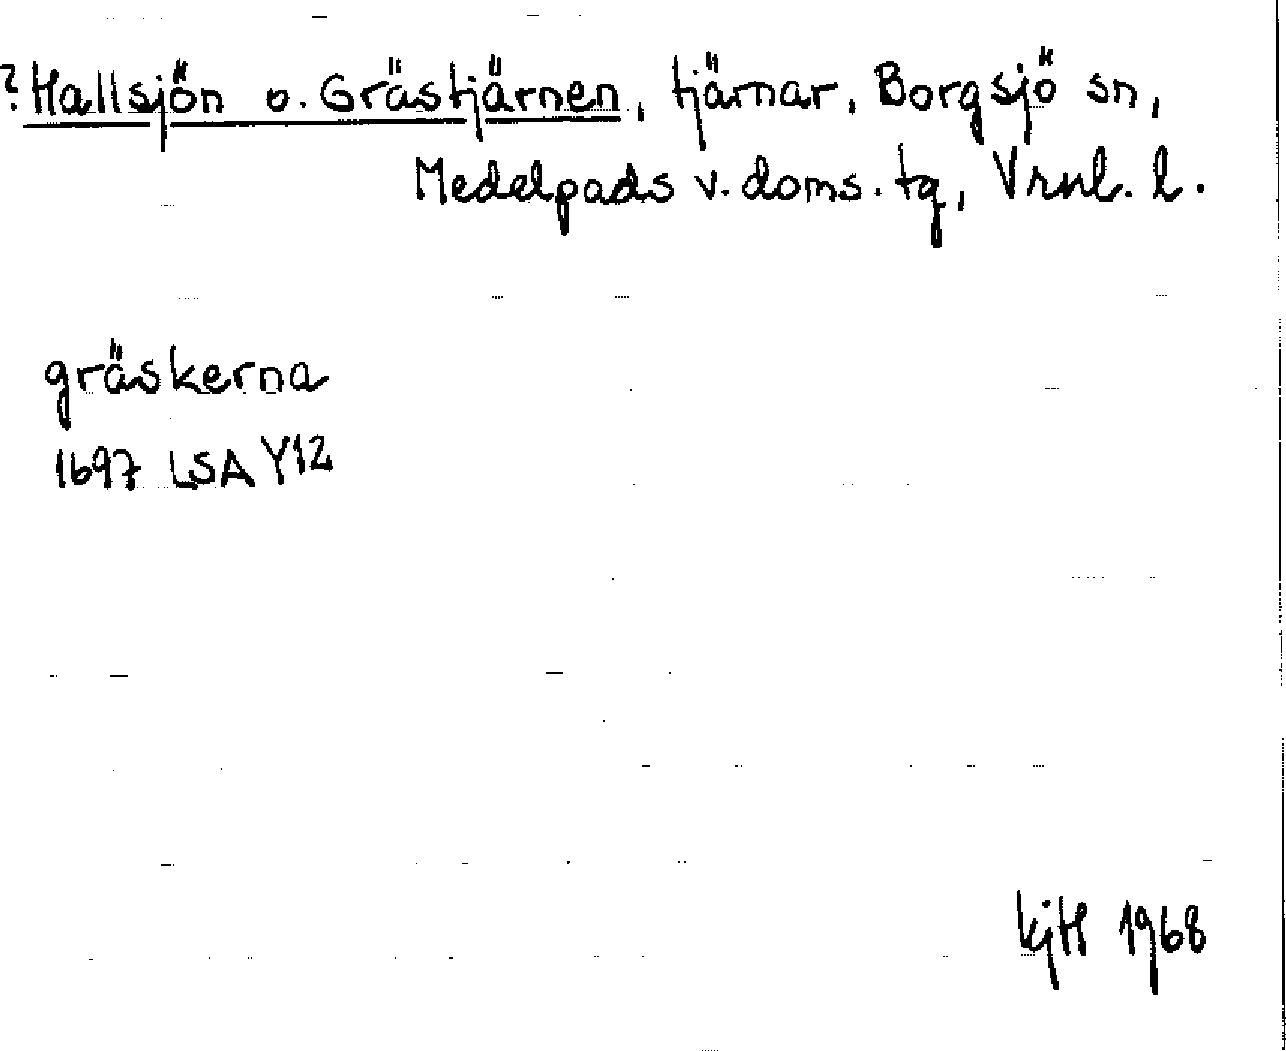 ? Hallsjön o. Grästjärnen, tjärnar, Borgsjö sn,
Medelpads v. doms. tg, Vrnl. l.
gräskerna
1697 LSA Y12
KjH 1968